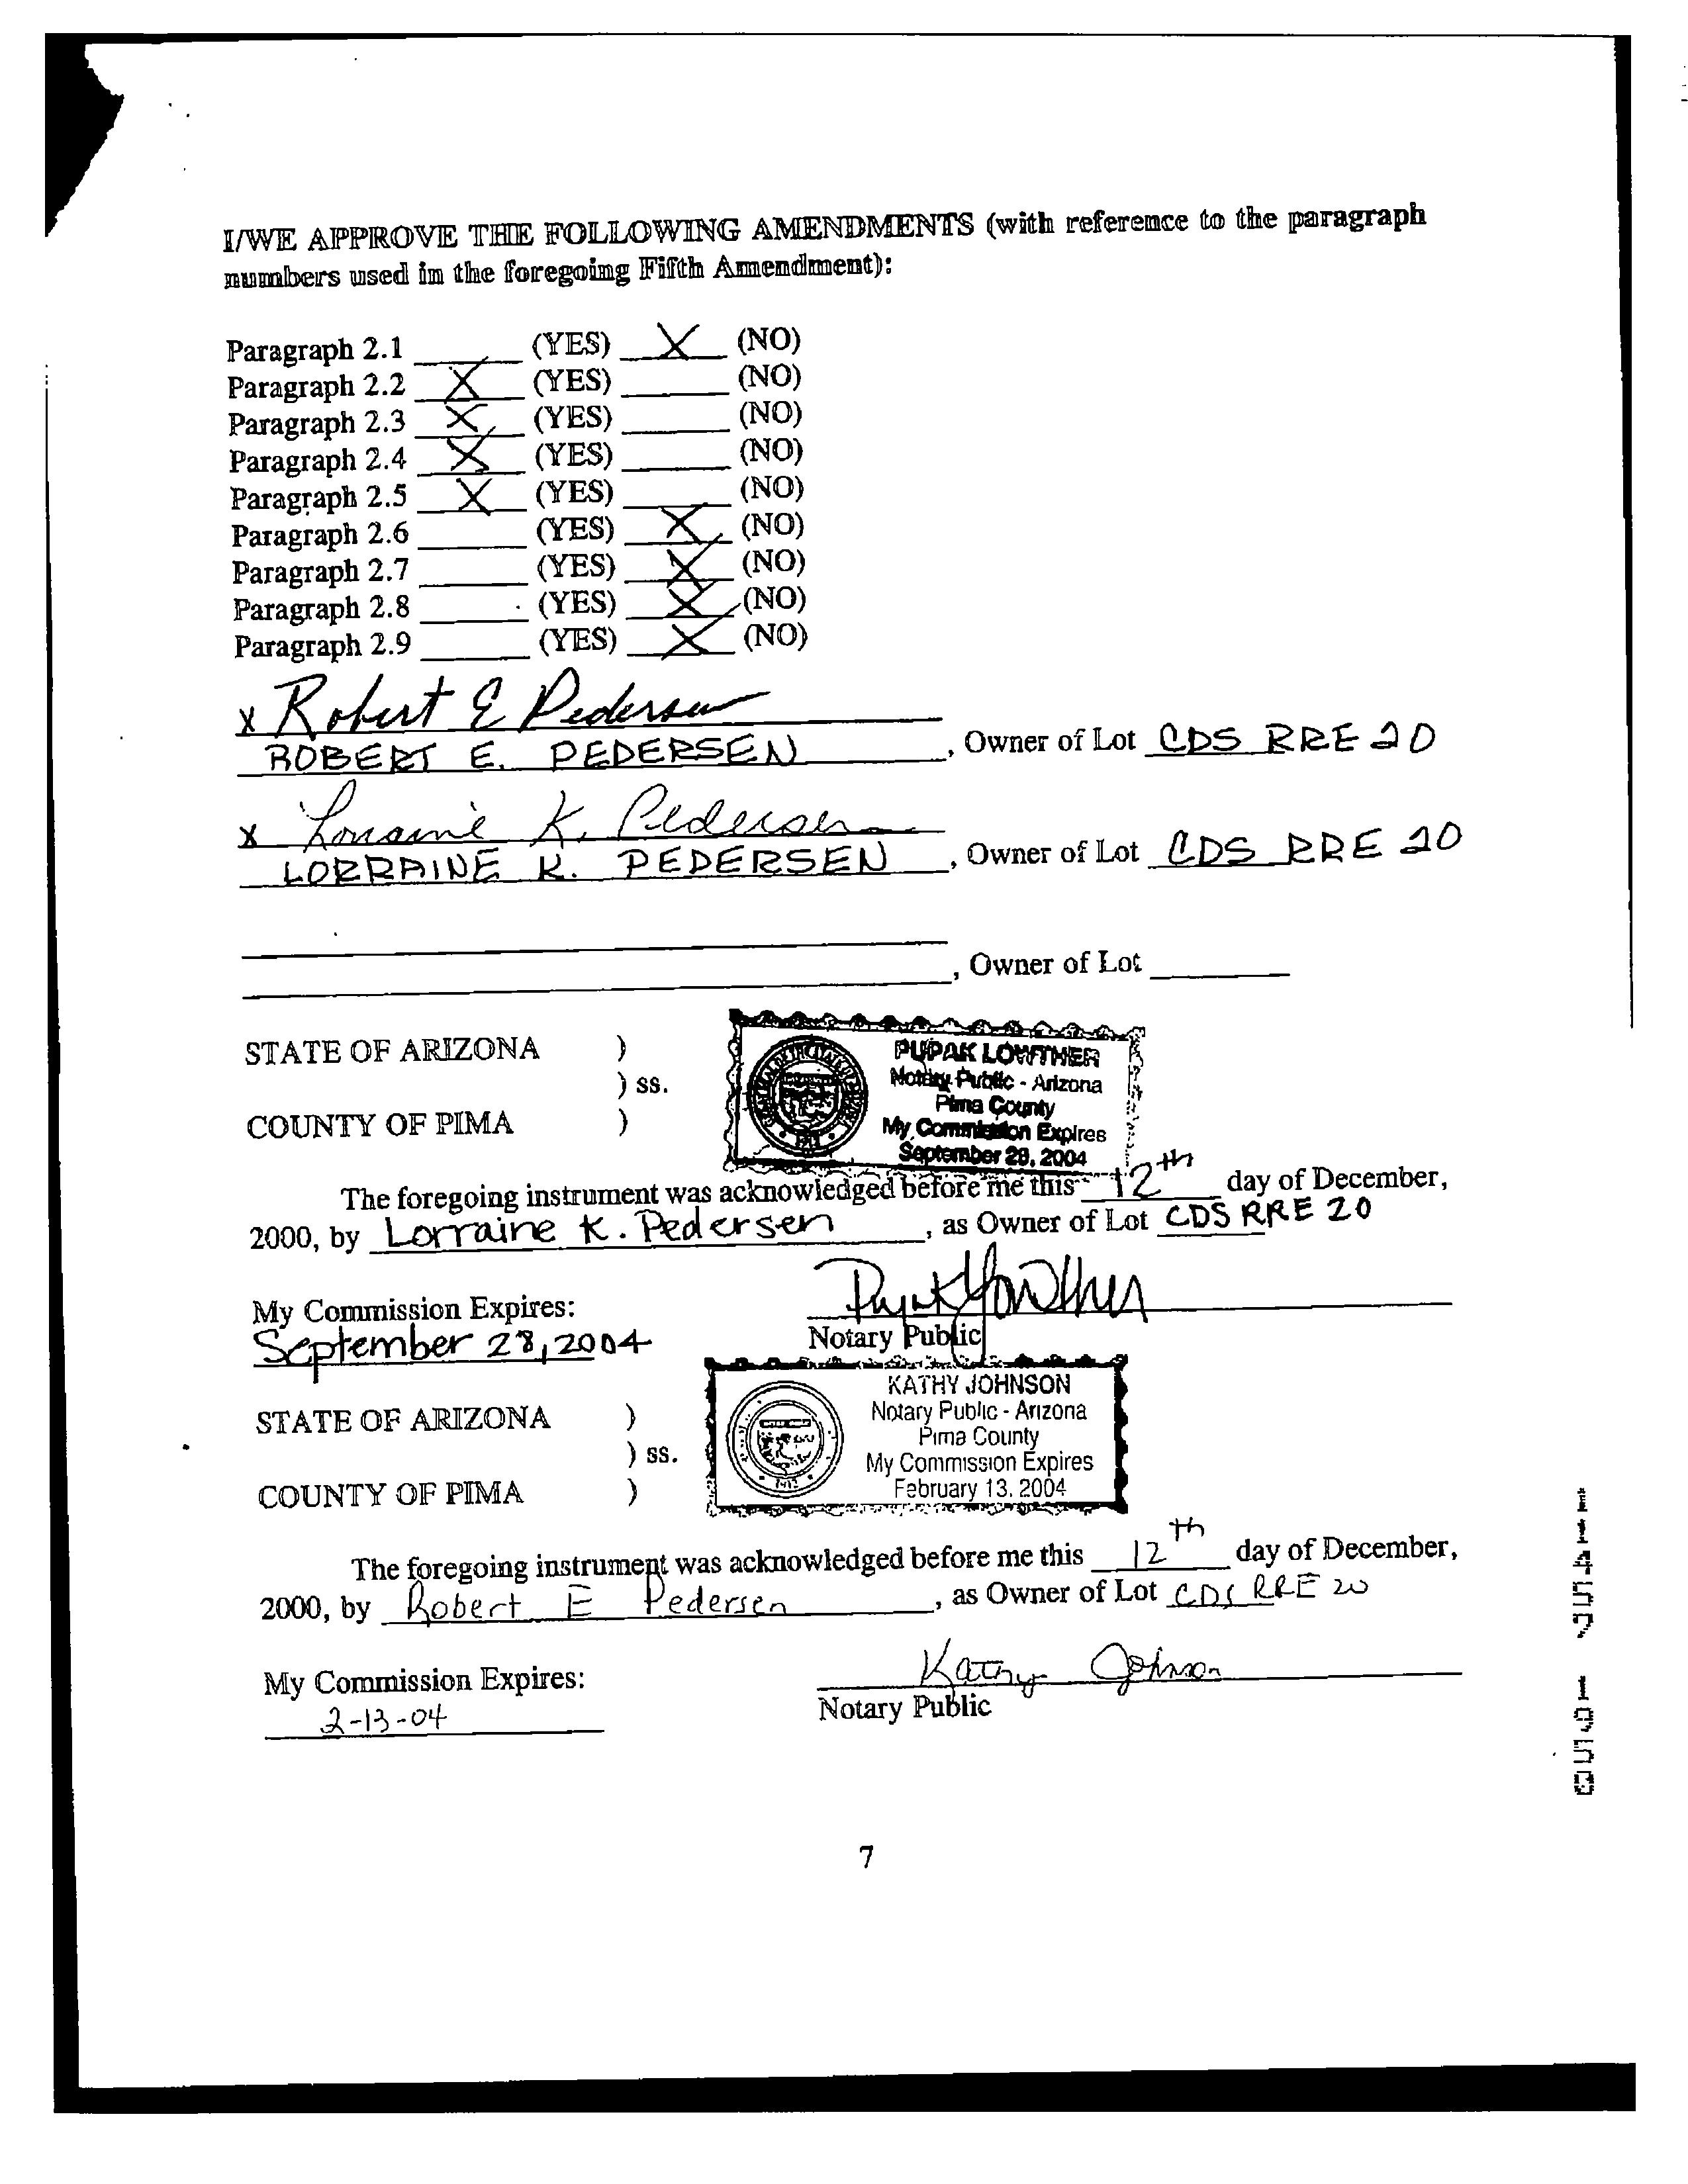 I/WE APPROVE THE FOLLOWING AMENDMENTS (with reference to the paragraph
numbers used in the foregoing Fifth Amendment):
Paragraph 2.1 ______ (YES) __X__ (NO)
Paragraph 2.2 __X__ (YES) ______ (NO)
Paragraph 2.3 __X__ (YES) ______ (NO)
Paragraph 2.4 __X__ (YES) ______ (NO)
Paragraph 2.5 __X__ (YES) ______ (NO)
Paragraph 2.6 ______ (YES) __X__ (NO)
Paragraph 2.7 ______ (YES) __X__ (NO)
Paragraph 2.8 ______ (YES) __X__ (NO)
Paragraph 2.9 ______ (YES) __X__ (NO)
x Robert E Pedersen
ROBERT E. PEDERSEN, Owner of Lot CDS RRE 20
x Lorraine K. Pedersen
LORRAINE K. PEDERSEN, Owner of Lot CDS RRE 20
, Owner of Lot ______
STATE OF ARIZONA )
) ss.
COUNTY OF PIMA )
PUPAK LOWTHER
Notary Public - Arizona
Pima County
My Commission Expires
September 28, 2004
The foregoing instrument was acknowledged before me this 12th day of December,
2000, by Lorraine K. Pedersen, as Owner of Lot CDS RRE 20
My Commission Expires:
September 28, 2004
Pupak Lowther
Notary Public
STATE OF ARIZONA )
) ss.
COUNTY OF PIMA )
KATHY JOHNSON
Notary Public - Arizona
Pima County
My Commission Expires
February 13, 2004
The foregoing instrument was acknowledged before me this 12th day of December,
2000, by Robert E Pedersen, as Owner of Lot CDS RRE 20
My Commission Expires:
2-13-04
Kathy Johnson
Notary Public
7